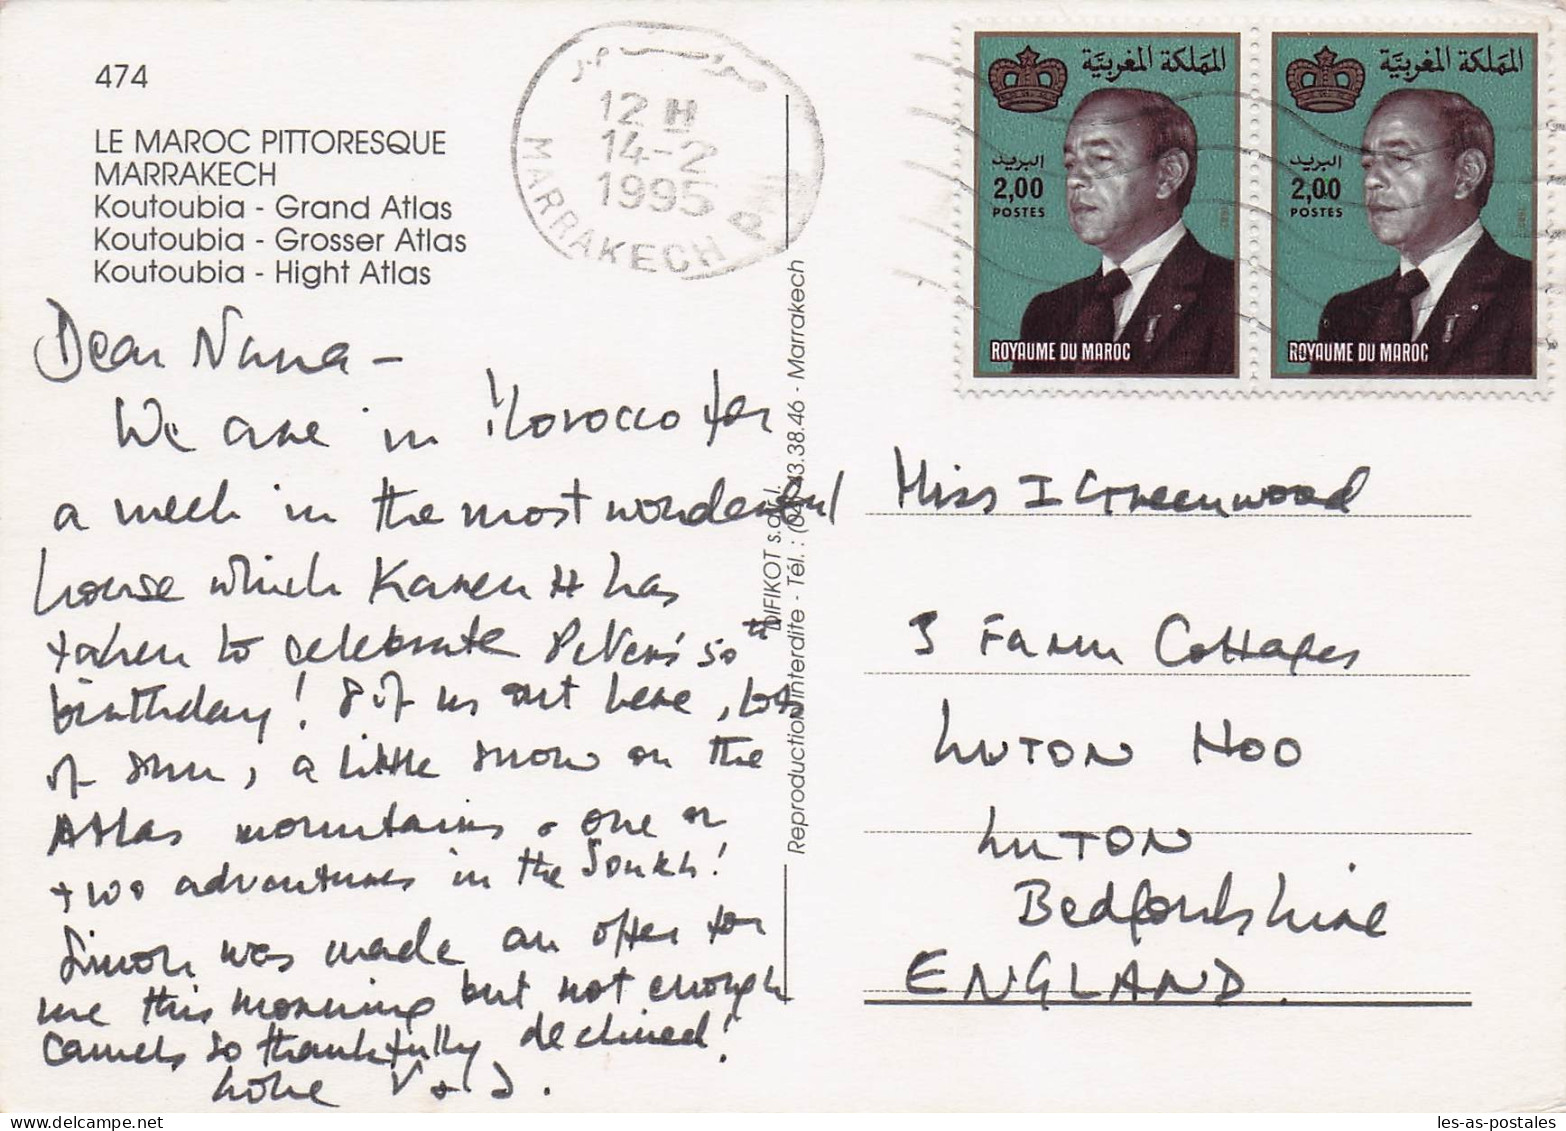 474
LE MAROC PITTORESQUE
MARRAKECH
Koutoubia - Grand Atlas
Koutoubia - Grosser Atlas
Koutoubia - Hight Atlas
12 H
14-2
1995
MARRAKECH
المملكة المغربية
البريد
2,00
POSTES
ROYAUME DU MAROC
المملكة المغربية
البريد
2,00
POSTES
ROYAUME DU MAROC
Dear Nana -
We are in Morocco for
a week in the most wonderful
house which Karen H has
taken to celebrate Peter's 50th
birthday! 8 of us out here, lots
of sun, a little snow on the
Atlas mountains & one or
two adventures in the Soukh!
Simon was made an offer for
me this morning but not enough
camels so thankfully declined!
love V & S.
DIFIKOT s.a.r.l.
Reproduction interdite - Tél. : (04) 43.38.46 - Marrakech
Miss I Greenwood
3 Farm Cottages
LUTON HOO
LUTON
Bedfordshire
ENGLAND.
les-as-postales